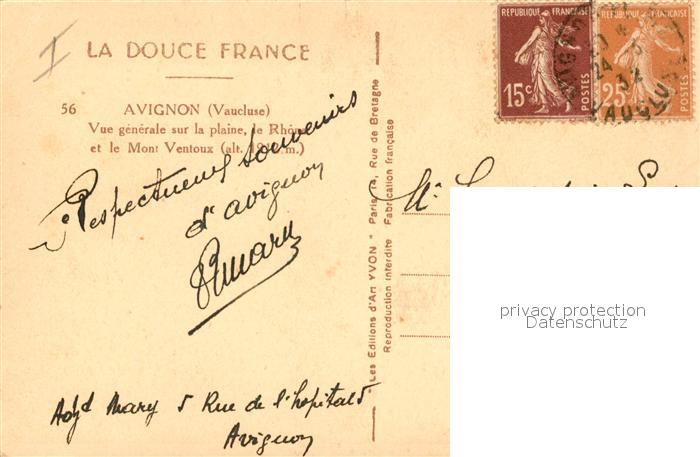 I
LA DOUCE FRANCE
56 AVIGNON (Vaucluse)
Vue générale sur la plaine, le Rhône
et le Mont Ventoux (alt. m.)
Respectueux souvenirs
d'avignon
Mary 5 Rue de l'hopital
Avignon
Les Editions d'Art YVON" Paris 14, Rue de Bretagne
Reproduction interdite Fabrication française
REPUBLIQUE FRANÇAISE
15c POSTES
REPUBLIQUE FRANÇAISE
25c POSTES
24
32
VAUCLUSE
privacy protection
Datenschutz